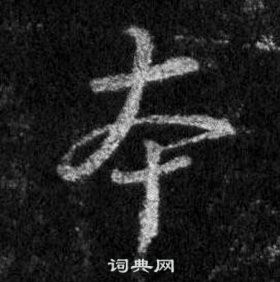 本
词典网